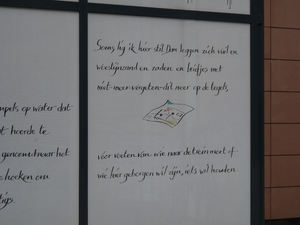 Soms lig ik hier stil. Dan leggen zich vuil en
woestijnzand en zaden en briefjes met
niet-meer-vergeten-dit neer op de tegels
vóór voeten van wie naar de trein moet of
wie hier geborgen wil zijn, iets wil houden
mpels op water dat
t hoorde te
genoemd naar het
hoeken om